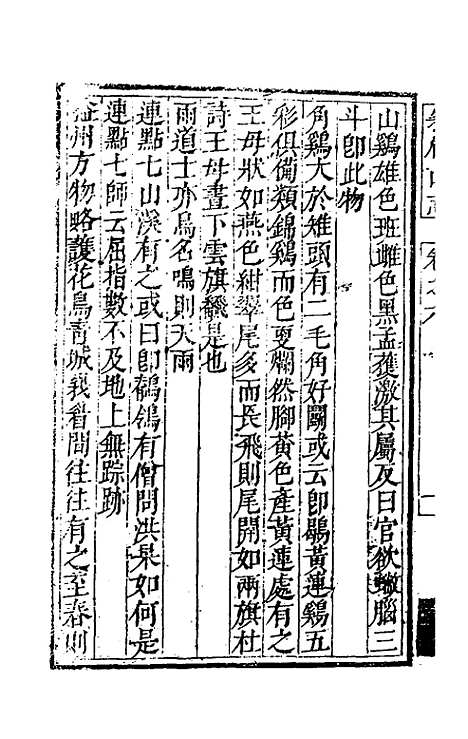 山鷄雄色班雌色黑孟獲激其屬及曰官欲蠍腦三
斗卽此物
角鷄大於雉頭有二毛角好鬪或云卽鶡黃蓮鷄五
彩俱備類錦鷄而色更爛然脚黃色產黃連處有之
王母狀如燕色紺翠尾多而長飛則尾開如兩旗村
詩王母晝下雲旗飜是也
雨道士亦鳥名鳴則天雨
連點七山溪有之或曰卽鶺鴒有僧問洪杲如何是
連點七師云屈指數不及地上無踪跡
益州方物略護花鳥靑城峩眉間往往有之至春則